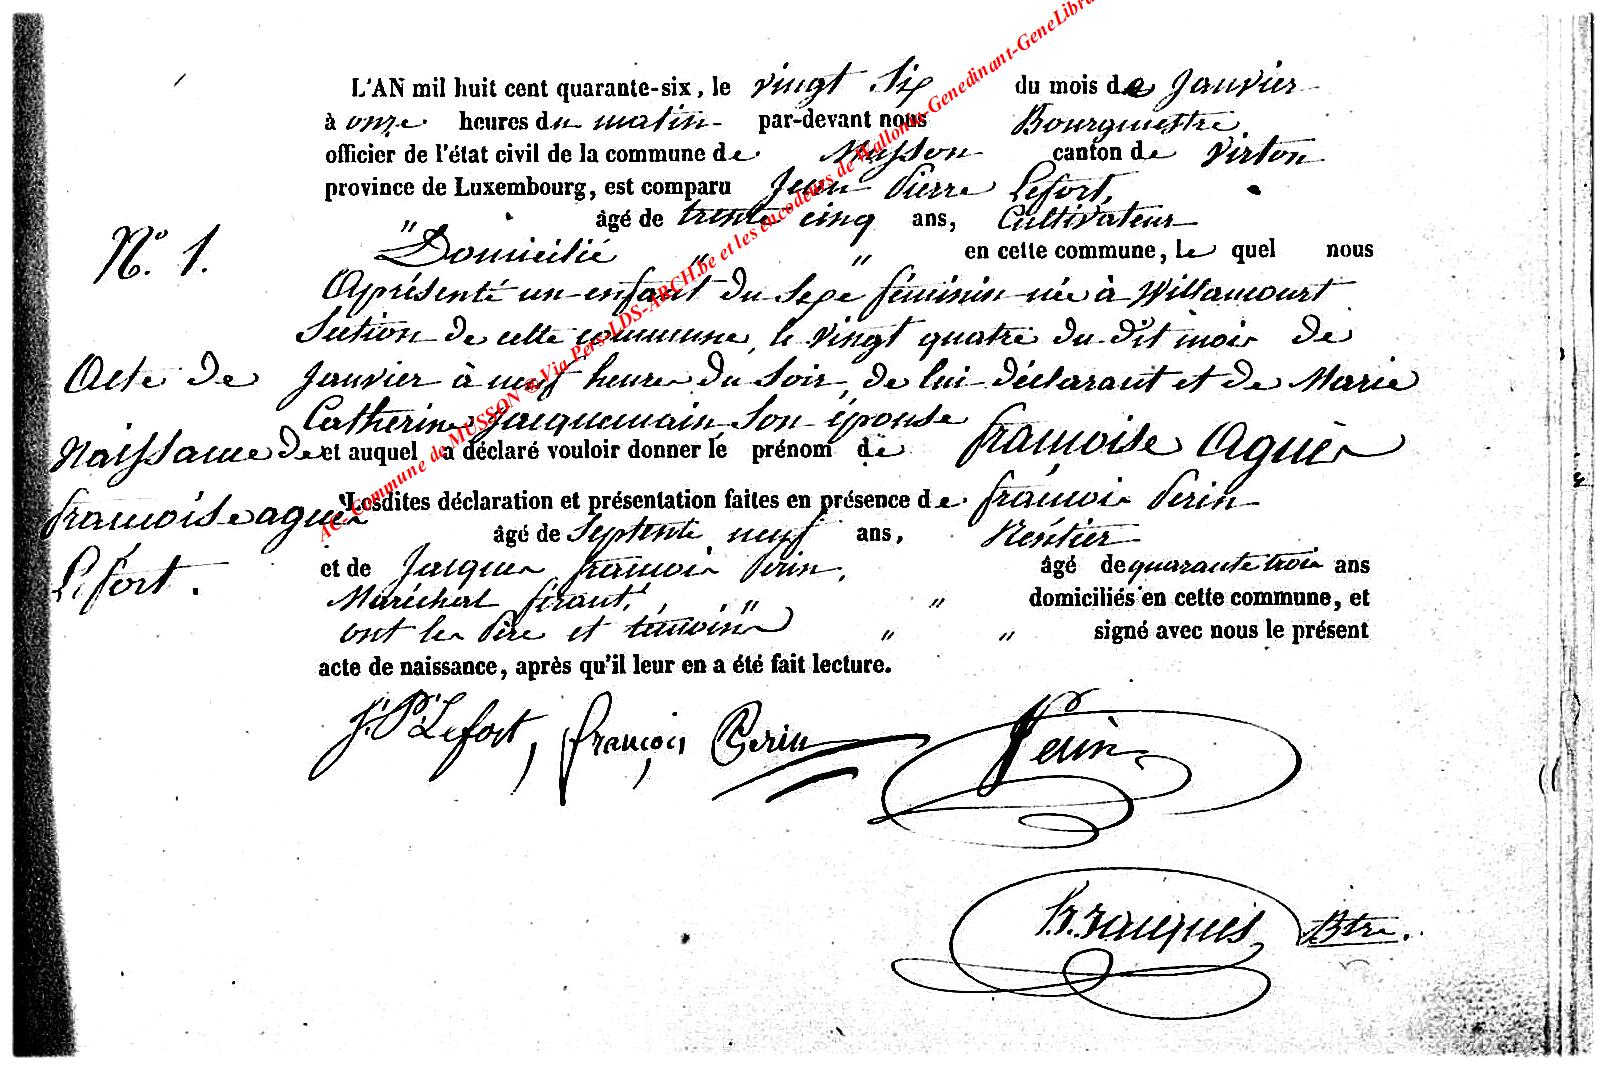 L'AN mil huit cent quarante-six, le vingt six du mois de Janvier
à onze heures du matin par-devant nous Bourgmestre
officier de l'état civil de la commune de Musson canton de Virton
province de Luxembourg, est comparu Jean Pierre Lefort,
" âgé de trente cinq ans, Cultivateur
Domicilié " " en cette commune, le quel nous
N.° 1.
Aprésenté un enfant du sexe féminin née à Willancourt
Section de cette commune, le vingt quatre du dit mois de
Janvier à neuf heures du soir, de lui déclarant et de Marie
Catherine Jacquemain son épouse
et auquel a déclaré vouloir donner le prénom de françoise Agnès
Acte de
Naissance de
françoise agnès
Lefort.
Lesdites déclaration et présentation faites en présence de françois Perin
âgé de Septente neuf ans, Réntier
et de Jacques françois Perin, âgé de quarante trois ans
Maréchal férant, " " domiciliés en cette commune, et
ont les Père et témoins " " signé avec nous le présent
acte de naissance, après qu'il leur en a été fait lecture.
J. P. Lefort, françois Perin Perin
Btre.
AC. Commune de MUSSON © Via Pers-LDS-ARCH.be et les encodeurs de Wallonia-Genedinant-GeneLibra